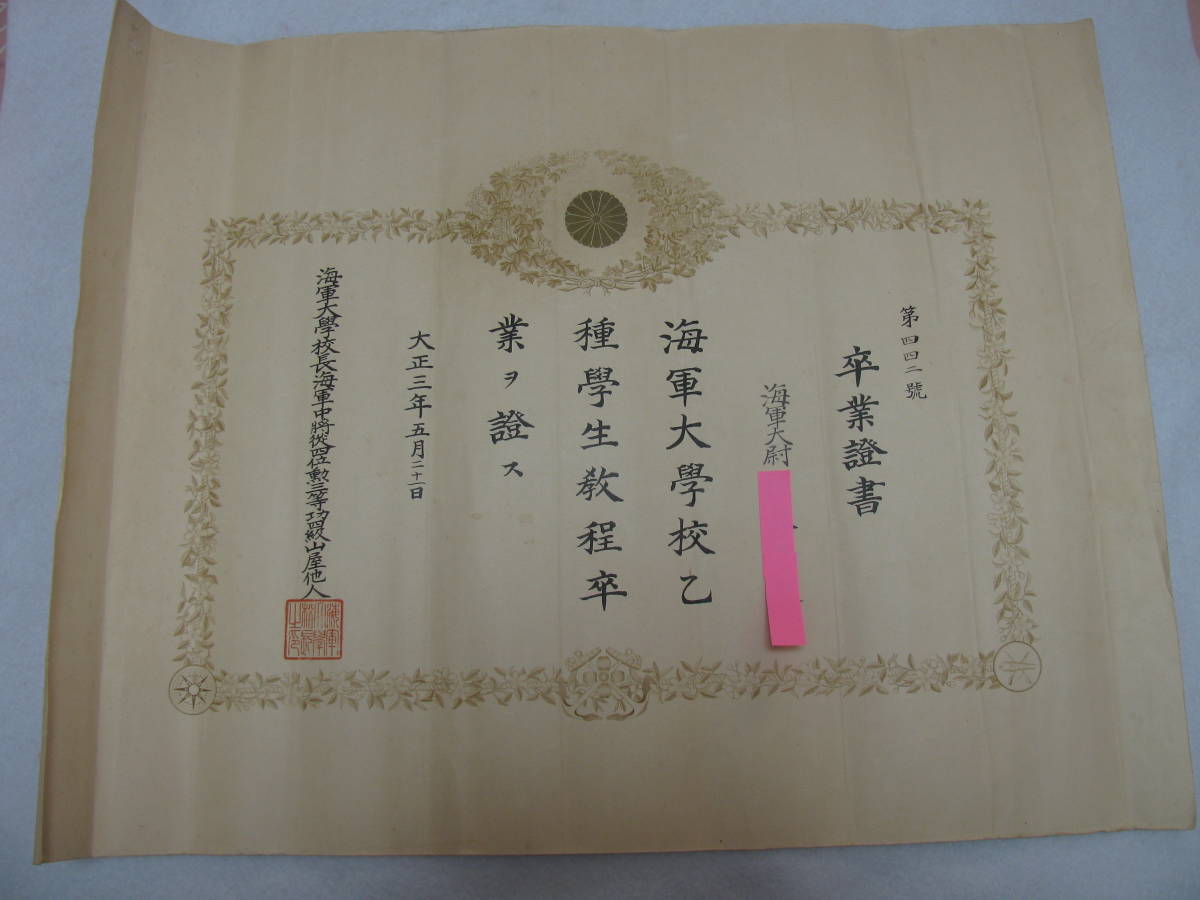 第四四二號
卒業證書
海軍大尉
海軍大學校乙
種學生敎程卒
業ヲ證ス
大正三年五月二十二日
海軍大學校長海軍中將從四位勲三等功四級山屋他人
海軍大學校長之印